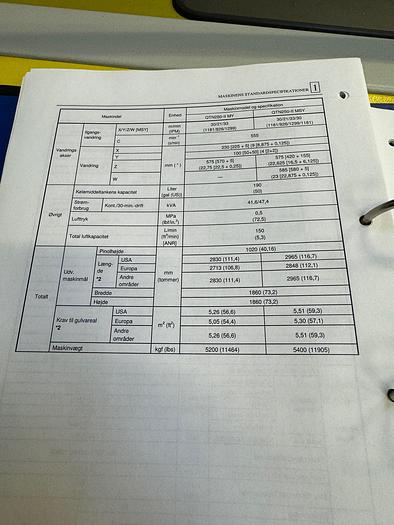 MASKINENS STANDARDSPECIFIKATIONER 1
Maskindel Enhed Maskinmodel og specifikation
QTN250-II MY QTN250-II MSY
Vandringsakser Ilgangsvandring X/Y/Z/W [MSY] m/min (IPM) 30/21/33 (1181/826/1299) 30/21/33/30 (1181/826/1299/1181)
C min⁻¹ (o/min) 555
Vandring X mm (") 230 [225 + 5] (9 [8,875 + 0,125])
Y 100 [50+50] (4 [2+2])
Z 575 [570 + 5] (22,75 [22,5 + 0,25]) 575 [420 + 155] (22,625 [16,5 + 6,125])
W — 585 [580 + 5] (23 [22,875 + 0,125])
Øvrigt Kølemiddeltankens kapacitet Liter (gal (US)) 190 (50)
Strømforbrug Kont./30-min.-drift kVA 41,6/47,4
Lufttryk MPa (lbf/in.²) 0,5 (72,5)
Total luftkapacitet L/min (ft³/min) [ANR] 150 (5,3)
Totalt Udv. maskinmål Pinolhøjde mm (tommer) 1020 (40,16)
Længde *2 USA 2830 (111,4) 2965 (116,7)
Europa 2713 (106,8) 2848 (112,1)
Andre områder 2830 (111,4) 2965 (116,7)
Bredde 1860 (73,2)
Højde 1860 (73,2)
Krav til gulvareal *2 USA m² (ft²) 5,26 (56,6) 5,51 (59,3)
Europa 5,05 (54,4) 5,30 (57,1)
Andre områder 5,26 (56,6) 5,51 (59,3)
Maskinvægt kgf (lbs) 5200 (11464) 5400 (11905)